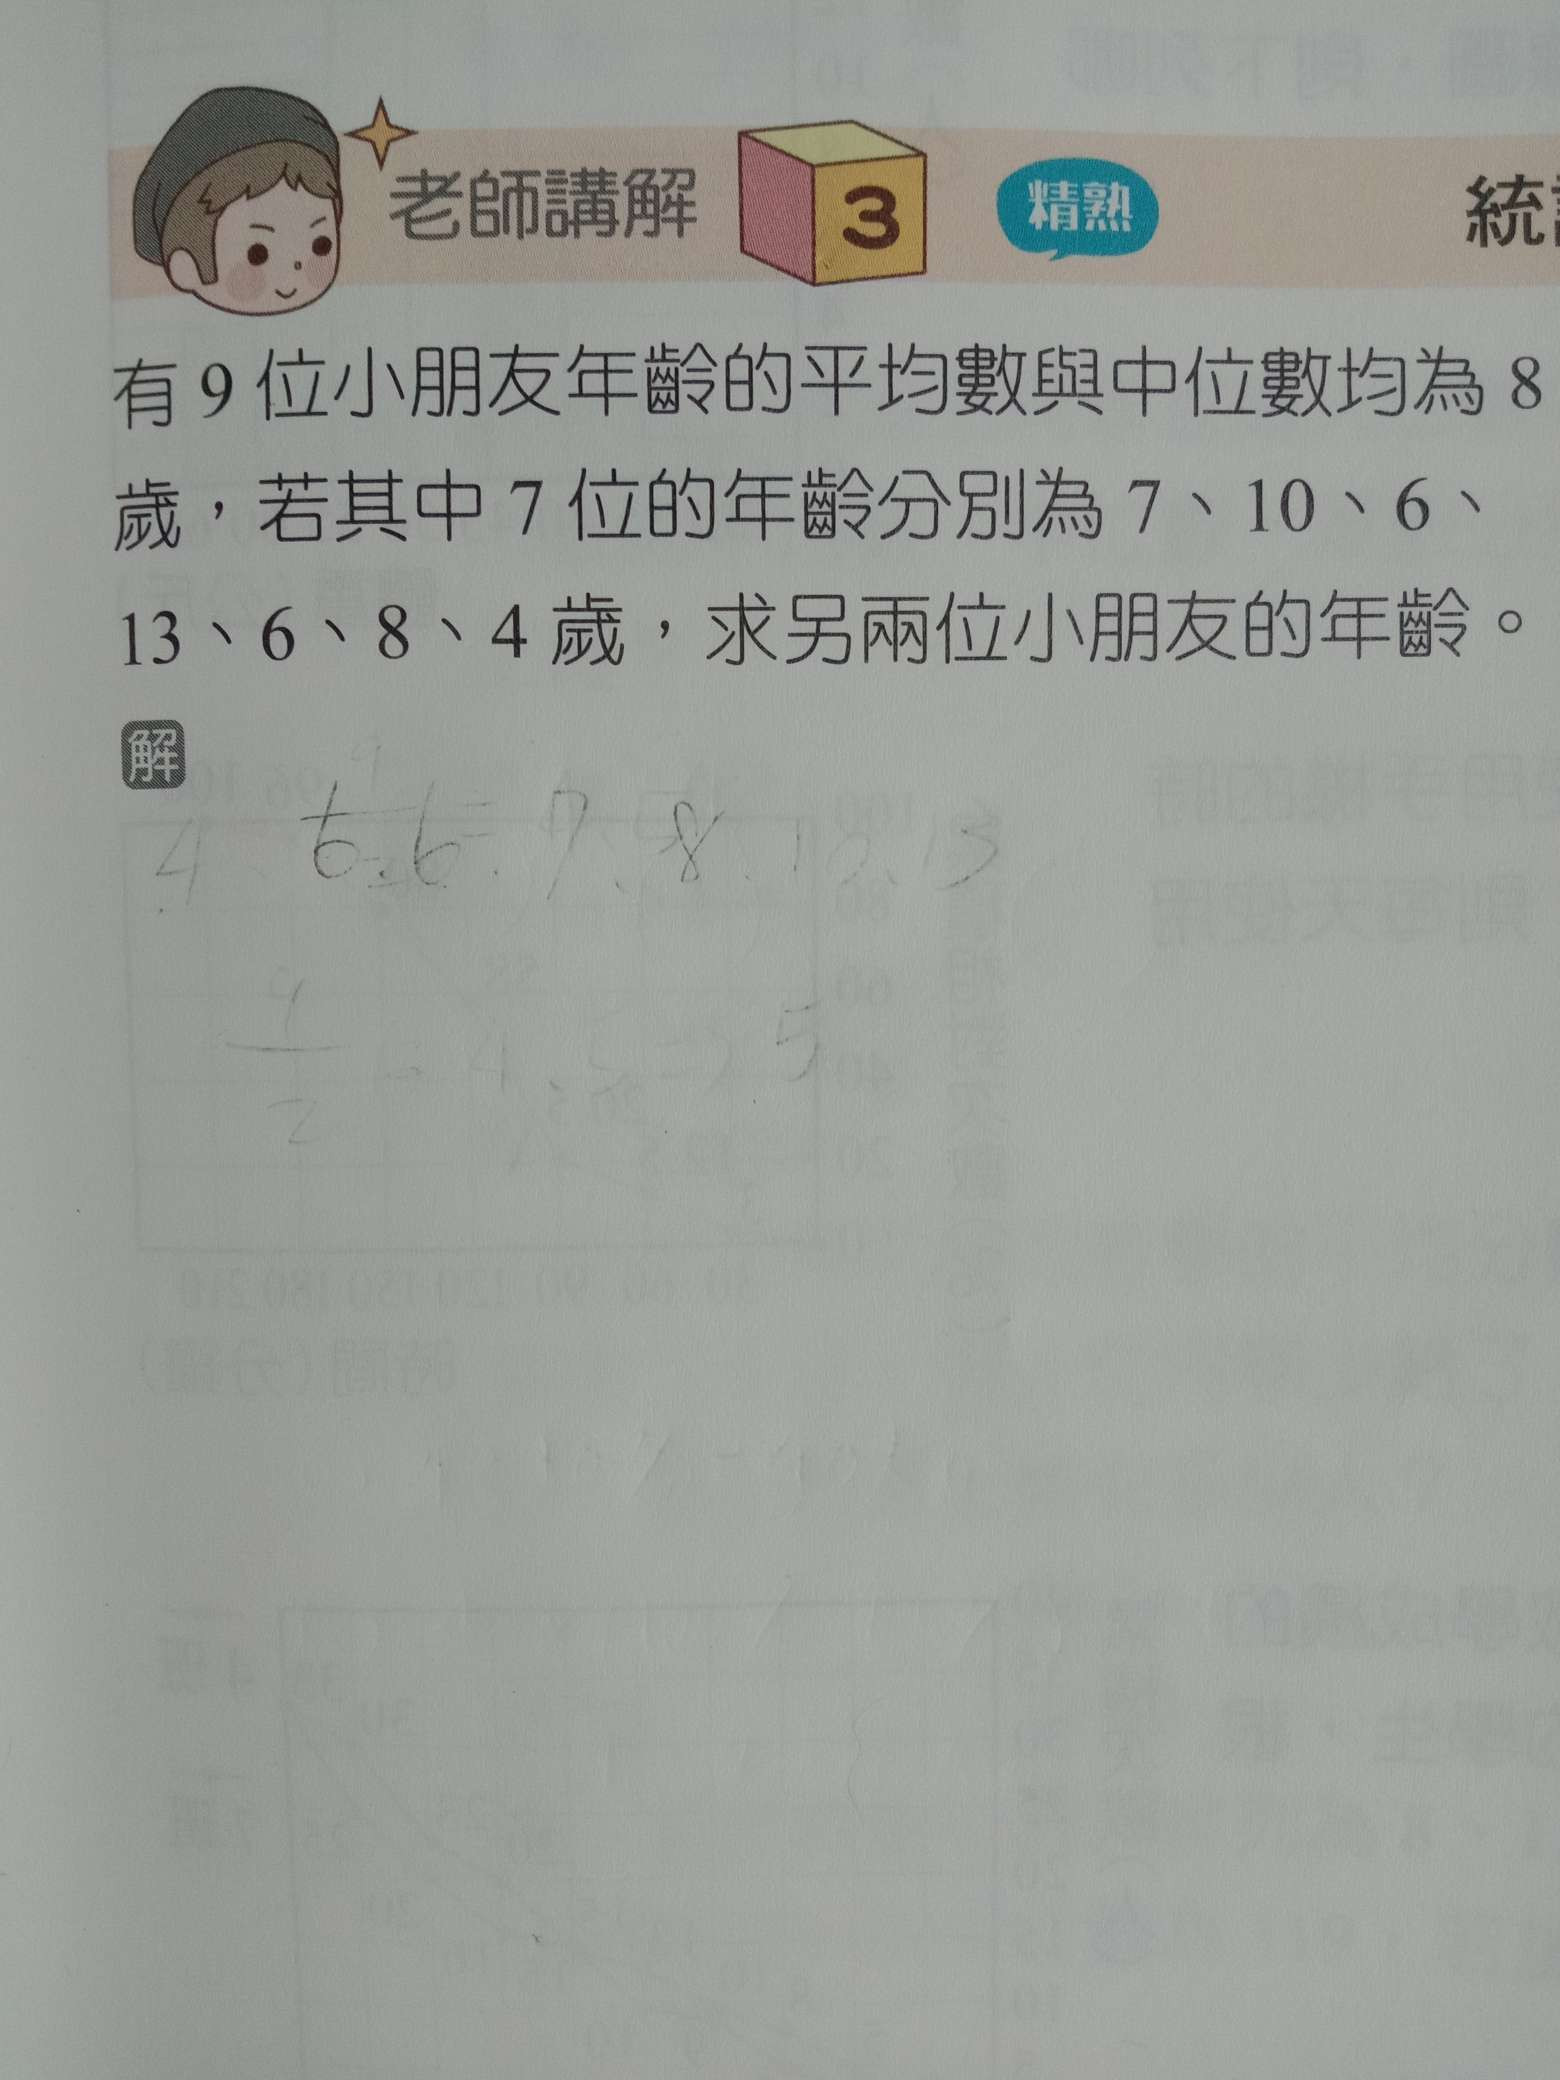 老師講解 3 精熟 統
有 9 位小朋友年齡的平均數與中位數均為 8
歲，若其中 7 位的年齡分別為 7、10、6、
13、6、8、4 歲，求另兩位小朋友的年齡。
解
4 6.6.7、8.10.13
9/2 = 4.5 => 5